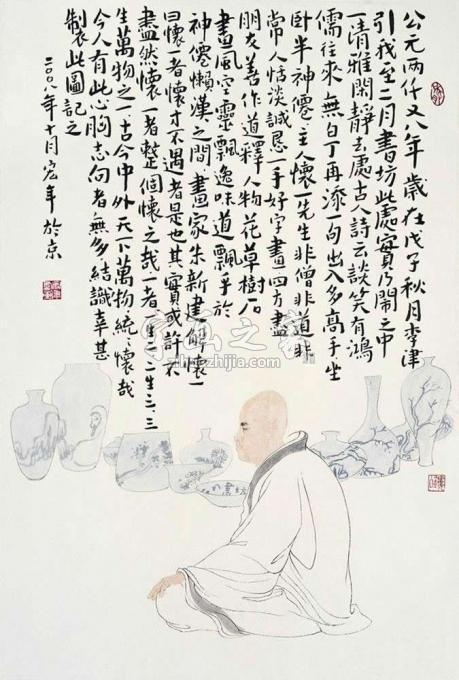 公元两仟又八年歲在戊子秋月李津
引我至二月書坊此處實乃鬧之中
一清雅閑静去處古人詩云談笑有鴻
儒往來無白丁再添一句出入多高手坐
卧半神僊主人懷一先生非僧非道非
常人恬淡誠恳一手好字畫一四方盡
朋友善作道釋人物花草樹石
畫風空靈飄逸味道飄乎於
神僊懶漢之間畫家朱新建解懷一
曰懷一者懷才不遇者是也其實或許不
盡然懷一者整個懷之哉一者一生二二生三、三
生萬物之一古今中外天下萬物統統懷哉
今人有此心胸志向者無多結識幸甚
製此圖記之
二〇〇八年十月宏年於京
字画之家
zihuazhijia.com